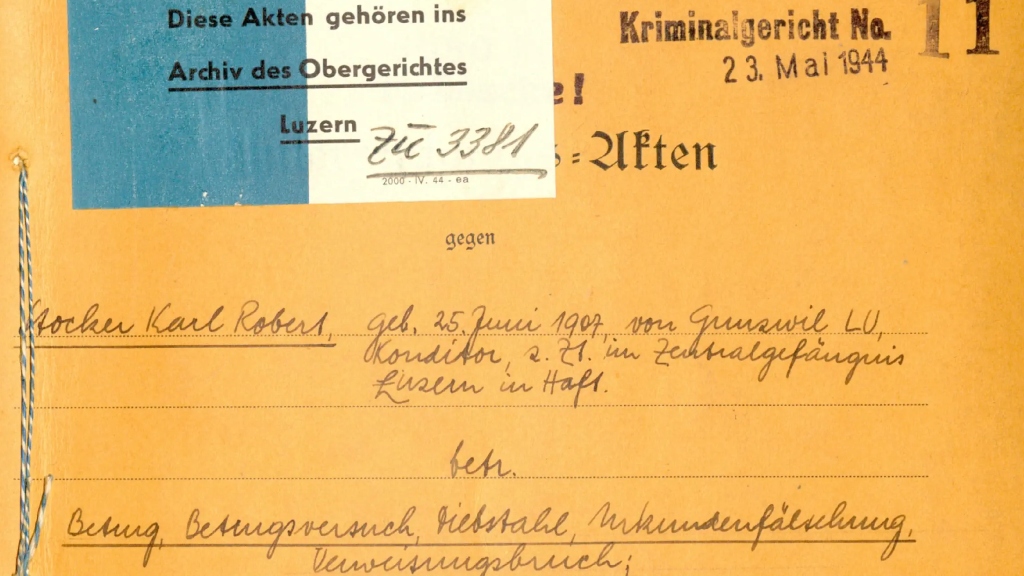 Diese Akten gehören ins
Archiv des Obergerichtes
Luzern
Zu 3381
2000 - IV. 44 - ea
Kriminalgericht No. 11
23. Mai 1944
e!
s = Akten
gegen
Stocker Karl Robert, geb. 25. Juni 1907, von Gunzwil LU,
Konditor, z. Zt. im Zentralgefängnis
Luzern in Haft.
betr.
Betrug, Betrugsversuch, Diebstahl, Urkundenfälschung,
Verweisungsbruch;